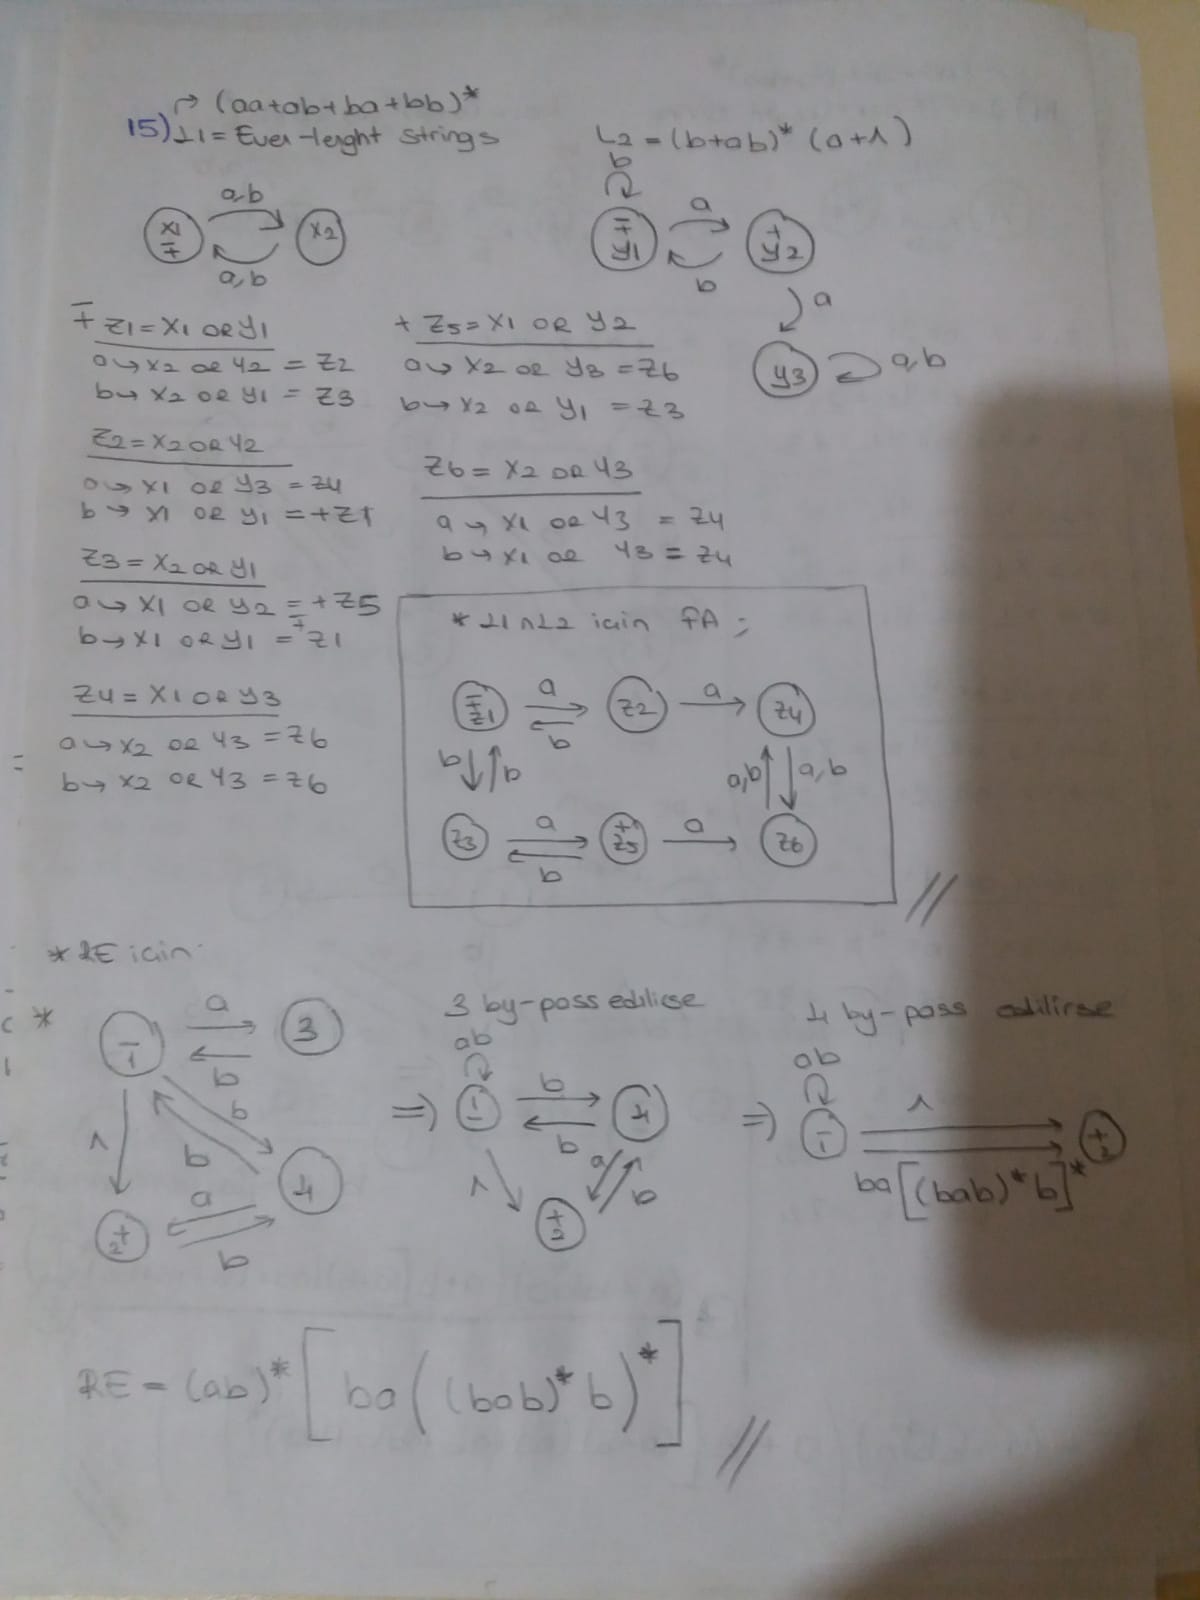 → (aa+ab+ba+bb)*
15) L1 = Even-lenght strings
L2 = (b+ab)* (a+Λ)
a,b
x1 ∓
x2
a,b
b
∓ y1
a
+ y2
b
a
y3
a,b
∓ z1 = x1 OR y1
a → x2 or y2 = z2
b → x2 OR y1 = z3
z2 = x2 OR y2
a → x1 OR y3 = z4
b → x1 OR y1 = +z1
z3 = x2 OR y1
a → x1 OR y2 = +z5
b → x1 OR y1 = ∓z1
z4 = x1 OR y3
a → x2 OR y3 = z6
b → x2 OR y3 = z6
+ z5 = x1 OR y2
a → x2 OR y3 = z6
b → x2 OR y1 = z3
z6 = x2 OR y3
a → x1 OR y3 = z4
b → x1 OR y3 = z4
* L1 ∩ L2 için FA ;
∓ z1
a
b
z2
a
z4
b
b
a,b
a,b
z3
a
b
+ z5
a
z6
* RE için
*
- 1
a
b
3
Λ
b
b
4
2+
a
b
3 by-pass edilirse
ab
⇒
- 1
b
b
4
Λ
a
b
+ 2
4 by-pass edilirse
ab
⇒
- 1
Λ
+ 2
ba[(bab)* b]*
RE = (ab)* [ba((bab)* b)*]